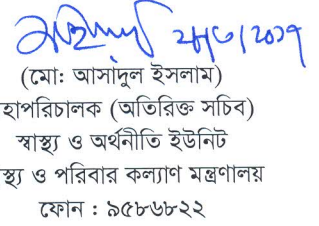 ২৮/৩/২০১৭
(মো: আসাদুল ইসলাম)
হাপরিচালক (অতিরিক্ত সচিব)
স্বাস্থ্য ও অর্থনীতি ইউনিট
স্থ্য ও পরিবার কল্যাণ মন্ত্রণালয়
ফোন : ৯৫৮৬৮২২